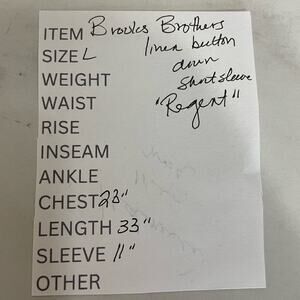 ITEM Brooks Brothers
SIZE L linen button
down
WEIGHT short sleeve
WAIST "Regent"
RISE
INSEAM
ANKLE
CHEST 23"
LENGTH 33"
SLEEVE 11"
OTHER